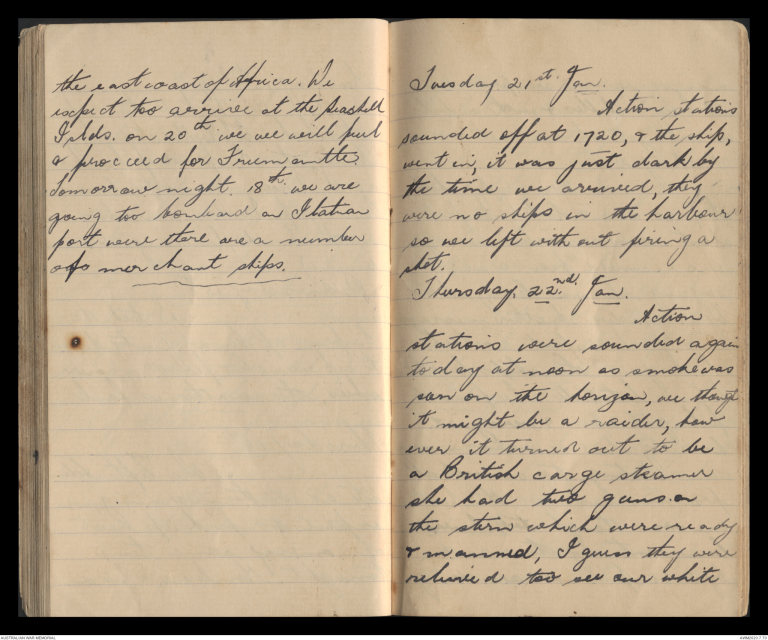 the east coast of Africa. We
expect too arrive at the Seashell
Islds. on 20th we we will fuel
& proceed for Freemantle.
Tomorrow night 18th. we are
going too bombard an Italian
port were there are a number
of merchant ships.
Tuesday 21st. Jan.
Action stations
sounded off at 1720, & the ship,
went in, it was just dark by
the time we arrived, they
were no ships in the harbour
so we left with out firing a
shot.
Thursday. 22nd. Jan.
Action
stations were sounded again
today at noon as smoke was
seen on the horizon, we though
it might be a raider, how
ever it turned out to be
a British cargo steamer
she had two guns on
the stern which were ready
& manned, I guess they were
relieved too see our white
AUSTRALIAN WAR MEMORIAL